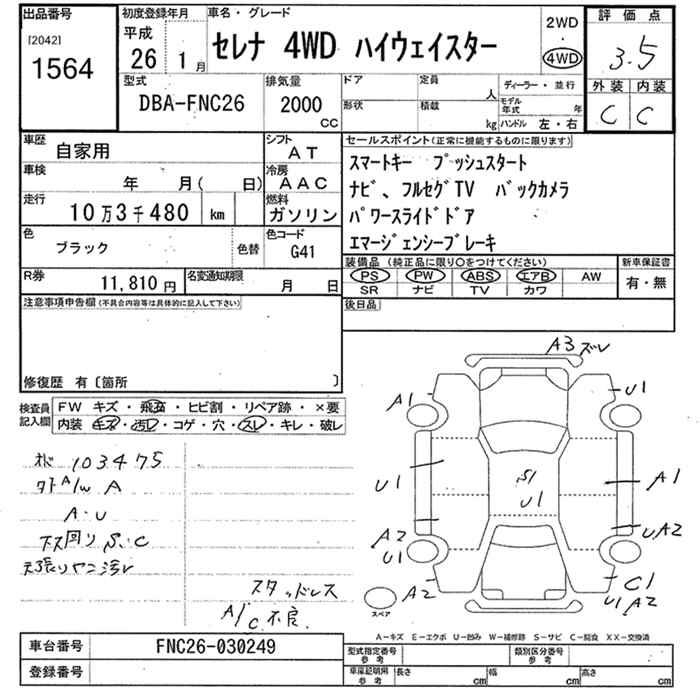 出品番号 初度登録年月 車名・グレード 評価点
[2042] 平成 2WD
1564 26 1月 セレナ 4WD ハイウェイスター 4WD 3.5
型式 排気量 ドア 定員 ディーラー・並行 外装 内装
DBA-FNC26 2000 cc 形状 積載 人 モデル年式 年 C C
kg ハンドル 左・右
車歴 自家用 シフト AT セールスポイント(正常に機能するものに限ります)
車検 年 月( 日) 冷房 AAC スマートキー プッシュスタート
走行 10万3千480 km 燃料 ガソリン ナビ、フルセグTV バックカメラ
パワースライドドア
色 ブラック 色替 色コード G41 エマージェンシーブレーキ
装備品(純正品に限り〇をつけてください) 新車保証書
R券 11,810円 名変通知期限 月 日 PS PW ABS エアB AW 有・無
SR ナビ TV カワ
注意事項申告欄(不具合内容等は具体的に記入して下さい) 後日品
修復歴 有〔箇所 〕
検査員記入欄 FW キズ・飛石・ヒビ割・リペア跡・×要
内装 キズ・汚レ・コゲ・穴・スレ・キレ・破レ
A3 ズレ
A1 U1
103475
A/W A
U1 S1 U1 A1
A・U
下回りS、C
A2 U1 UA2
天張りヤニ汚レ
A2 C1
U1 A2
スタッドレス
A/C不良
スペア
A−キズ E−エクボ U−凹み W−補修跡 S−サビ C−腐食 XX−交換済
車台番号 FNC26-030249 型式指定番号 参考 類別区分番号 参考
登録番号 車庫証明用 参考 長さ cm 幅 cm 高さ cm